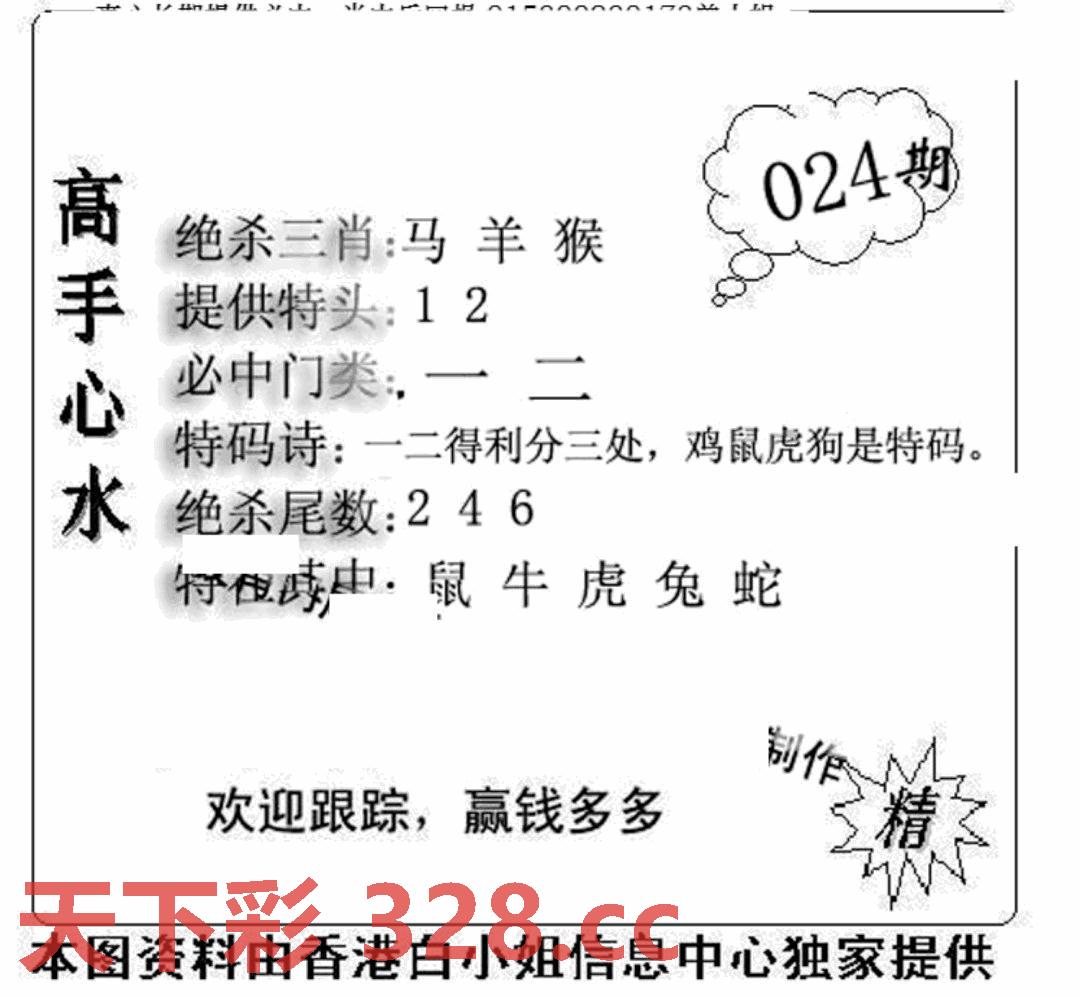 024期
高手心水
绝杀三肖:马 羊 猴
提供特头:1 2
必中门类:一 二
特码诗:一二得利分三处，鸡鼠虎狗是特码。
绝杀尾数:2 4 6
鼠 牛 虎 兔 蛇
制作
精
欢迎跟踪，赢钱多多
天下彩 328.cc
本图资料由香港白小姐信息中心独家提供